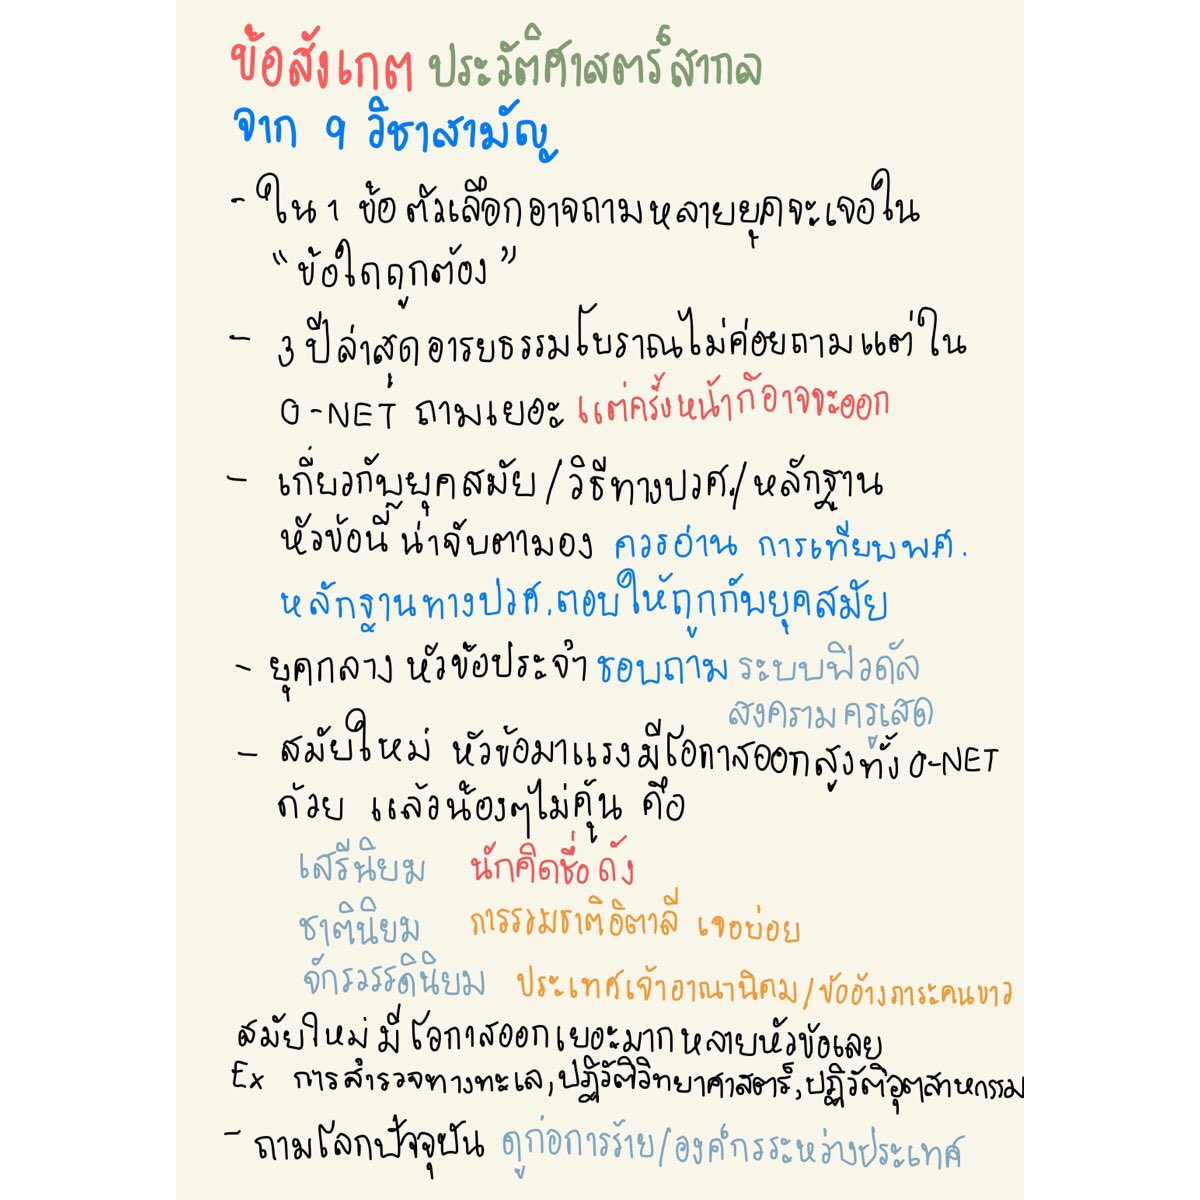 ข้อสังเกต ประวัติศาสตร์สากล
จาก 9 วิชาสามัญ
- ใน 1 ข้อ ตัวเลือกอาจถามหลายยุคจะเจอใน
"ข้อใดถูกต้อง"
- 3 ปีล่าสุดอารยธรรมโบราณไม่ค่อยถามแต่ใน
O-NET ถามเยอะ แต่ครั้งหน้าก็อาจจะออก
- เกี่ยวกับยุคสมัย/วิธีทางปวศ./หลักฐาน
หัวข้อนี้น่าจับตามอง ควรอ่าน การเทียบพศ.
หลักฐานทางปวศ.ตอบให้ถูกกับยุคสมัย
- ยุคกลาง หัวข้อประจำ ชอบถาม ระบบฟิวดัล
สงครามครูเสด
- สมัยใหม่ หัวข้อมาแรงมีโอกาสออกสูงทั้ง O-NET
ด้วย แล้วน้องๆไม่คุ้น คือ
เสรีนิยม นักคิดชื่อดัง
ชาตินิยม การรวมชาติอิตาลี เจอบ่อย
จักรวรรดินิยม ประเทศเจ้าอาณานิคม/ข้ออ้างภาระคนขาว
สมัยใหม่ มีโอกาสออกเยอะมากหลายหัวข้อเลย
Ex การสำรวจทางทะเล,ปฏิวัติวิทยาศาสตร์,ปฏิวัติอุตสาหกรรม
- ถามโลกปัจจุบัน ดูก่อการร้าย/องค์กรระหว่างประเทศ